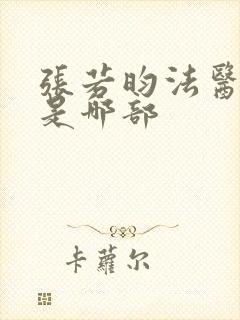 張若昀法醫
是那部
卡蘿尔